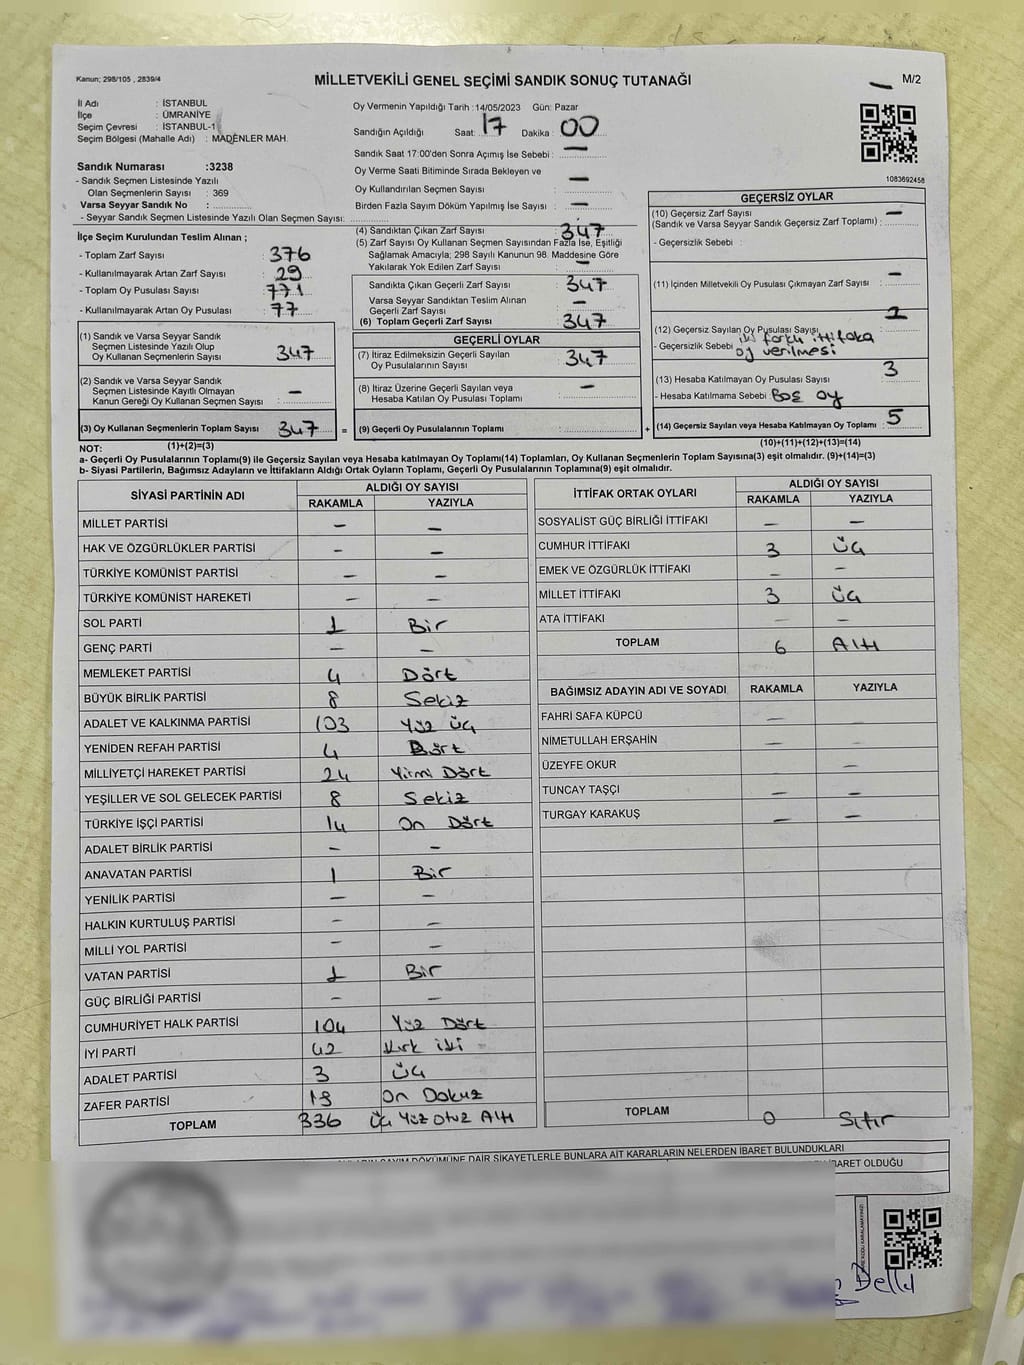 Kanun; 298/105 , 2839/4
MİLLETVEKİLİ GENEL SEÇİMİ SANDIK SONUÇ TUTANAĞI
M/2
İl Adı : İSTANBUL
İlçe : ÜMRANİYE
Seçim Çevresi : İSTANBUL-1
Seçim Bölgesi (Mahalle Adı) : MADENLER MAH.
Oy Vermenin Yapıldığı Tarih : 14/05/2023 Gün: Pazar
Sandığın Açıldığı Saat: 17 Dakika : 00
Sandık Saat 17:00'den Sonra Açımış İse Sebebi : —
Oy Verme Saati Bitiminde Sırada Bekleyen ve
Oy Kullandırılan Seçmen Sayısı : —
Birden Fazla Sayım Döküm Yapılmış İse Sayısı : —
1083692458
Sandık Numarası :3238
- Sandık Seçmen Listesinde Yazılı
Olan Seçmenlerin Sayısı : 369
Varsa Seyyar Sandık No :
- Seyyar Sandık Seçmen Listesinde Yazılı Olan Seçmen Sayısı:
İlçe Seçim Kurulundan Teslim Alınan ;
- Toplam Zarf Sayısı : 376
- Kullanılmayarak Artan Zarf Sayısı : 29
- Toplam Oy Pusulası Sayısı : 771
- Kullanılmayarak Artan Oy Pusulası : 77
(1) Sandık ve Varsa Seyyar Sandık
Seçmen Listesinde Yazılı Olup
Oy Kullanan Seçmenlerin Sayısı : 347
(2) Sandık ve Varsa Seyyar Sandık
Seçmen Listesinde Kayıtlı Olmayan
Kanun Gereği Oy Kullanan Seçmen Sayısı : —
(3) Oy Kullanan Seçmenlerin Toplam Sayısı : 347 =
(1)+(2)=(3)
(4) Sandıktan Çıkan Zarf Sayısı : 347
(5) Zarf Sayısı Oy Kullanan Seçmen Sayısından Fazla İse, Eşitliği
Sağlamak Amacıyla; 298 Sayılı Kanunun 98. Maddesine Göre
Yakılarak Yok Edilen Zarf Sayısı : —
Sandıkta Çıkan Geçerli Zarf Sayısı : 347
Varsa Seyyar Sandıktan Teslim Alınan
Geçerli Zarf Sayısı : —
(6) Toplam Geçerli Zarf Sayısı : 347
GEÇERLİ OYLAR
(7) İtiraz Edilmeksizin Geçerli Sayılan
Oy Pusulalarının Sayısı : 347
(8) İtiraz Üzerine Geçerli Sayılan veya
Hesaba Katılan Oy Pusulası Toplamı : —
(9) Geçerli Oy Pusulalarının Toplamı : +
GEÇERSİZ OYLAR
(10) Geçersiz Zarf Sayısı
(Sandık ve Varsa Seyyar Sandık Geçersiz Zarf Toplamı) : —
- Geçersizlik Sebebi :
(11) İçinden Milletvekili Oy Pusulası Çıkmayan Zarf Sayısı : —
(12) Geçersiz Sayılan Oy Pusulası Sayısı : 2
- Geçersizlik Sebebi iki farklı ittifaka
oy verilmesi
(13) Hesaba Katılmayan Oy Pusulası Sayısı : 3
- Hesaba Katılmama Sebebi : Boş oy
(14) Geçersiz Sayılan veya Hesaba Katılmayan Oy Toplamı : 5
(10)+(11)+(12)+(13)=(14)
NOT:
a- Geçerli Oy Pusulalarının Toplamı(9) ile Geçersiz Sayılan veya Hesaba Katılmayan Oy Toplamı(14) Toplamları, Oy Kullanan Seçmenlerin Toplam Sayısına(3) eşit olmalıdır. (9)+(14)=(3)
b- Siyasi Partilerin, Bağımsız Adayların ve İttifakların Aldığı Ortak Oyların Toplamı, Geçerli Oy Pusulalarının Toplamına(9) eşit olmalıdır.
SİYASİ PARTİNİN ADI ALDIĞI OY SAYISI
RAKAMLA YAZIYLA
MİLLET PARTİSİ — —
HAK VE ÖZGÜRLÜKLER PARTİSİ — —
TÜRKİYE KOMÜNİST PARTİSİ — —
TÜRKİYE KOMÜNİST HAREKETİ — —
SOL PARTİ 1 Bir
GENÇ PARTİ — —
MEMLEKET PARTİSİ 4 Dört
BÜYÜK BİRLİK PARTİSİ 8 Sekiz
ADALET VE KALKINMA PARTİSİ 103 Yüz Üç
YENİDEN REFAH PARTİSİ 4 Dört
MİLLİYETÇİ HAREKET PARTİSİ 24 Yirmi Dört
YEŞİLLER VE SOL GELECEK PARTİSİ 8 Sekiz
TÜRKİYE İŞÇİ PARTİSİ 14 On Dört
ADALET BİRLİK PARTİSİ — —
ANAVATAN PARTİSİ 1 Bir
YENİLİK PARTİSİ — —
HALKIN KURTULUŞ PARTİSİ — —
MİLLİ YOL PARTİSİ — —
VATAN PARTİSİ 1 Bir
GÜÇ BİRLİĞİ PARTİSİ — —
CUMHURİYET HALK PARTİSİ 104 Yüz Dört
İYİ PARTİ 42 Kırk iki
ADALET PARTİSİ 3 Üç
ZAFER PARTİSİ 19 On Dokuz
TOPLAM 336 Üç Yüz Otuz Altı
İTTİFAK ORTAK OYLARI ALDIĞI OY SAYISI
RAKAMLA YAZIYLA
SOSYALİST GÜÇ BİRLİĞİ İTTİFAKI — —
CUMHUR İTTİFAKI 3 Üç
EMEK VE ÖZGÜRLÜK İTTİFAKI — —
MİLLET İTTİFAKI 3 Üç
ATA İTTİFAKI — —
TOPLAM 6 Altı
BAĞIMSIZ ADAYIN ADI VE SOYADI RAKAMLA YAZIYLA
FAHRİ SAFA KÜPCÜ —
NİMETULLAH ERŞAHİN — —
ÜZEYFE OKUR —
TUNCAY TAŞÇI — —
TURGAY KARAKUŞ — —
TOPLAM 0 Sıfır
SAYIM DÖKÜMÜNE DAİR ŞİKAYETLERLE BUNLARA AİT KARARLARIN NELERDEN İBARET BULUNDUKLARI
İBARET OLDUĞU